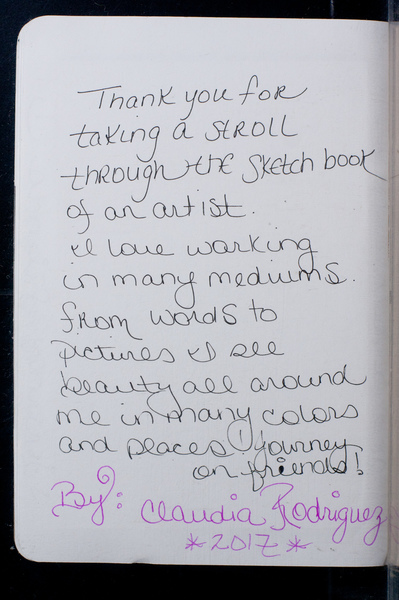 Thank you for
taking a stroll
through the sketch book
of an artist.
I love working
in many mediums.
from words to
pictures I see
beauty all around
me in many colors
and places! Journey
on friends!
By: Claudia Rodriguez
*2017*